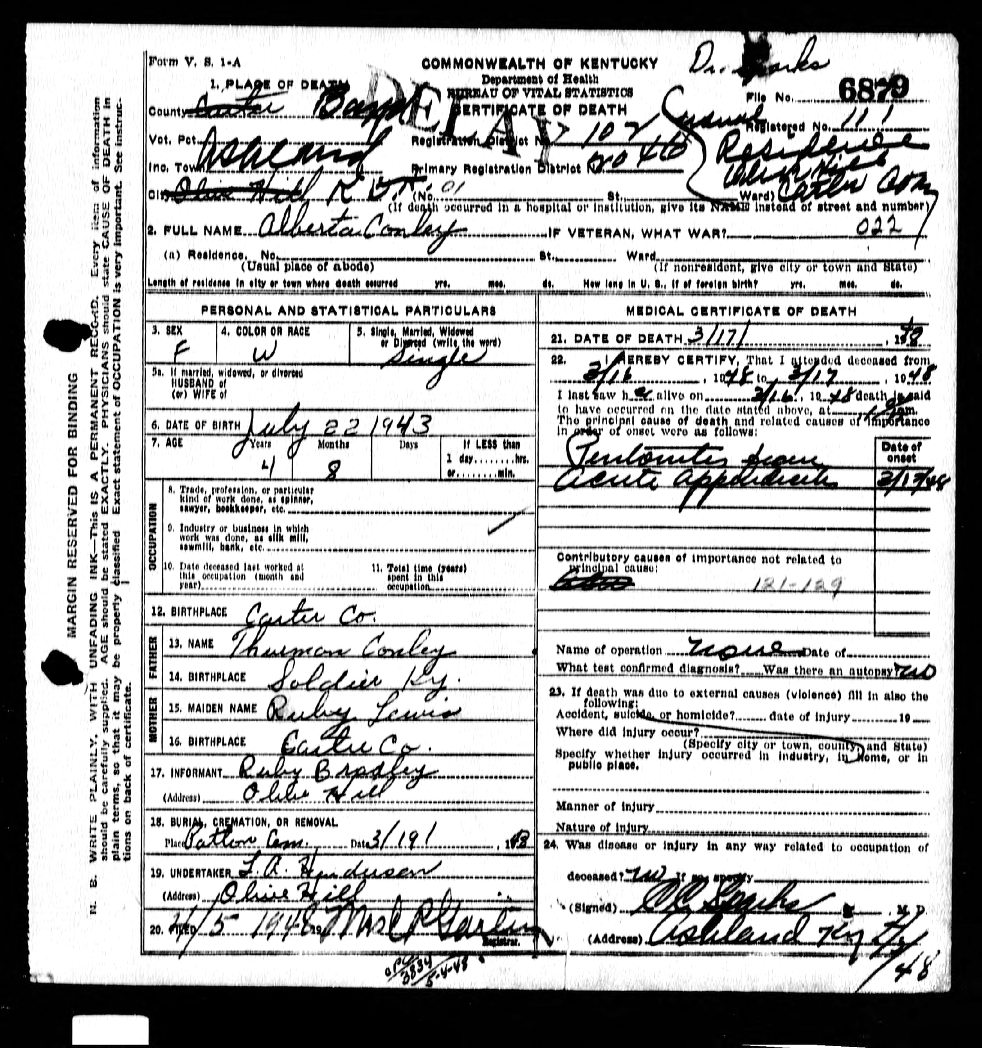 Form V. S. 1-A
COMMONWEALTH OF KENTUCKY
Department of Health
BUREAU OF VITAL STATISTICS
CERTIFICATE OF DEATH
DELAY
Dr. Sparks
File No. 6879
Registered No. 111
1. PLACE OF DEATH
County Carter Boyd
Vot. Pct.
Registration District No. 102
Inc. Town Ashland
Primary Registration District No.
Usual
Residence
Olive Hill
Carter
City Olive Hill (No. St. Ward)
(If death occurred in a hospital or institution, give its NAME instead of street and number)
2. FULL NAME Alberta Conley IF VETERAN, WHAT WAR? 022
(a) Residence. No. St. Ward
(Usual place of abode) (If nonresident, give city or town and State)
Length of residence in city or town where death occurred yrs. mos. ds. How long in U. S., if of foreign birth? yrs. mos. ds.
PERSONAL AND STATISTICAL PARTICULARS
3. SEX F
4. COLOR OR RACE W
5. Single, Married, Widowed or Divorced (write the word) Single
5a. If married, widowed, or divorced
HUSBAND of
(or) WIFE of
6. DATE OF BIRTH July 22 1943
7. AGE Years Months Days If LESS than
4 8 1 day, hrs.
or min.
OCCUPATION
8. Trade, profession, or particular
kind of work done, as spinner,
sawyer, bookkeeper, etc.
9. Industry or business in which
work was done, as silk mill,
sawmill, bank, etc.
10. Date deceased last worked at
this occupation (month and
year)
11. Total time (years)
spent in this
occupation
12. BIRTHPLACE Carter Co.
FATHER
13. NAME Thurman Conley
14. BIRTHPLACE Soldier Ky.
MOTHER
15. MAIDEN NAME Ruby Lewis
16. BIRTHPLACE Carter Co.
17. INFORMANT Ruby Bradley
(Address) Olive Hill
18. BURIAL, CREMATION, OR REMOVAL
Place Patton Cem. Date 3/19/, 1948
19. UNDERTAKER L. A. Henderson
(Address) Olive Hill
20. FILED 4/5 1948 19
Registrar.
MEDICAL CERTIFICATE OF DEATH
21. DATE OF DEATH 3/17/, 1948
22. I HEREBY CERTIFY, That I attended deceased from
3/16, 1948 to 3/17, 1948
I last saw her alive on 3/16, 1948 death is said
to have occurred on the date stated above, at
The principal cause of death and related causes of importance
in order of onset were as follows:
Date of
onset
Peritonitis from
Acute Appendicitis 3/15/48
Contributory causes of importance not related to
principal cause:
121-129
Name of operation none Date of
What test confirmed diagnosis? Was there an autopsy? no
23. If death was due to external causes (violence) fill in also the
following:
Accident, suicide, or homicide? date of injury 19
Where did injury occur?
(Specify city or town, county, and State)
Specify whether injury occurred in industry, in home, or in
public place.
Manner of injury
Nature of injury
24. Was disease or injury in any way related to occupation of
deceased? no If so, specify
(Signed) Sparks M. D.
(Address) Ashland Ky
3834
5-4-48
MARGIN RESERVED FOR BINDING
N. B. WRITE PLAINLY, WITH UNFADING INK—THIS IS A PERMANENT RECORD. Every item of information
should be carefully supplied. AGE should be stated EXACTLY. PHYSICIANS should state CAUSE OF DEATH in
plain terms, so that it may be properly classified. Exact statement of OCCUPATION is very important. See instruc-
tions on back of certificate.